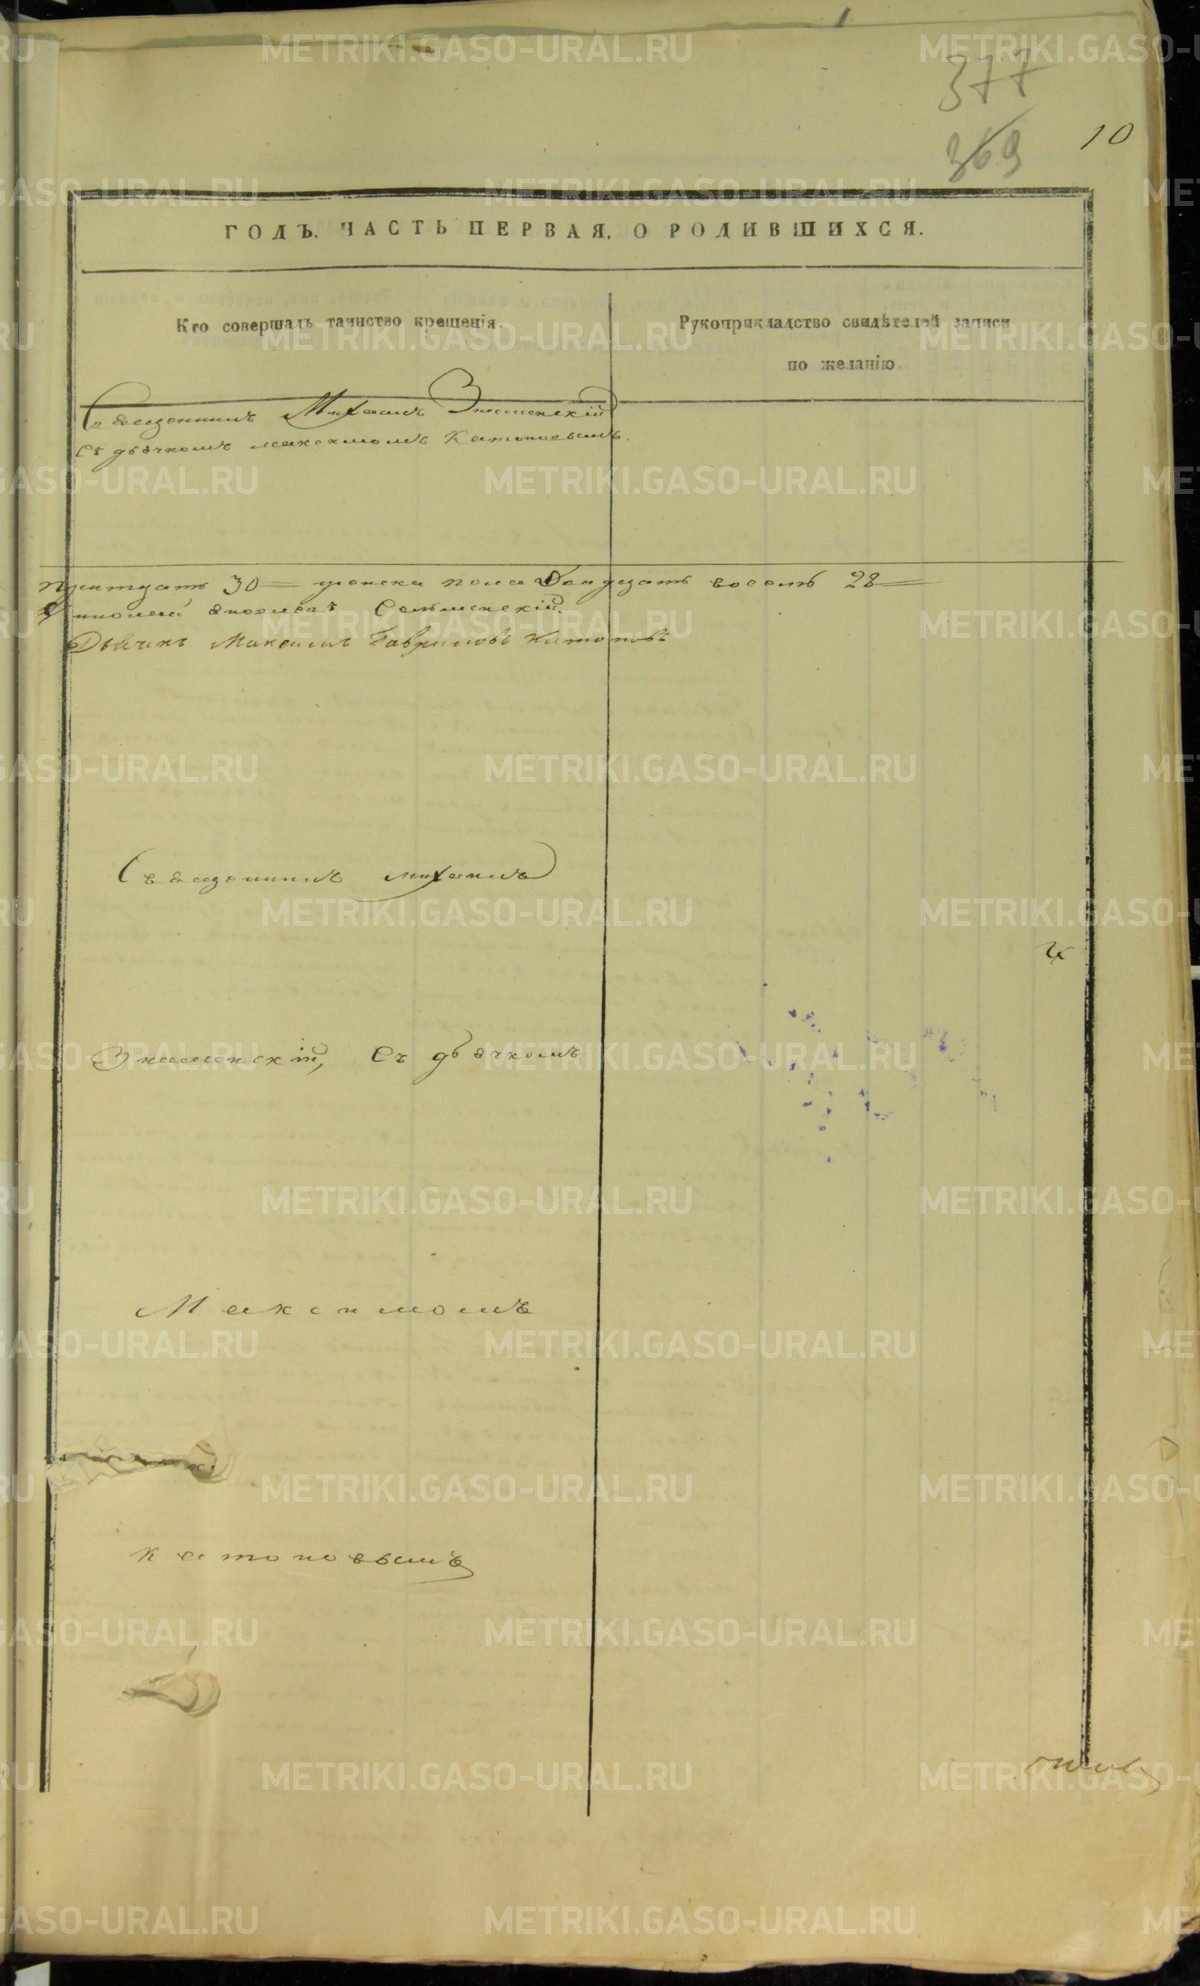 377
369
10
ГОДЪ. ЧАСТЬ ПЕРВАЯ. О РОДИВШИХСЯ.
Кто совершалъ таинство крещенія.
Рукоприкладство свидѣтелей записи
по желанію.
Священникъ Михаилъ Знаменскій
съ дьячкомъ Максимомъ Катоповымъ.
тритцать 30 — женска пола Двадцать восемь 28 —
Знаменскій.
Дьячекъ Максимъ Гавриловъ Катоповъ
Священникъ Михаилъ
Знаменскій, Съ дьячкомъ
Максимомъ
Катоповымъ
METRIKI.GASO-URAL.RU